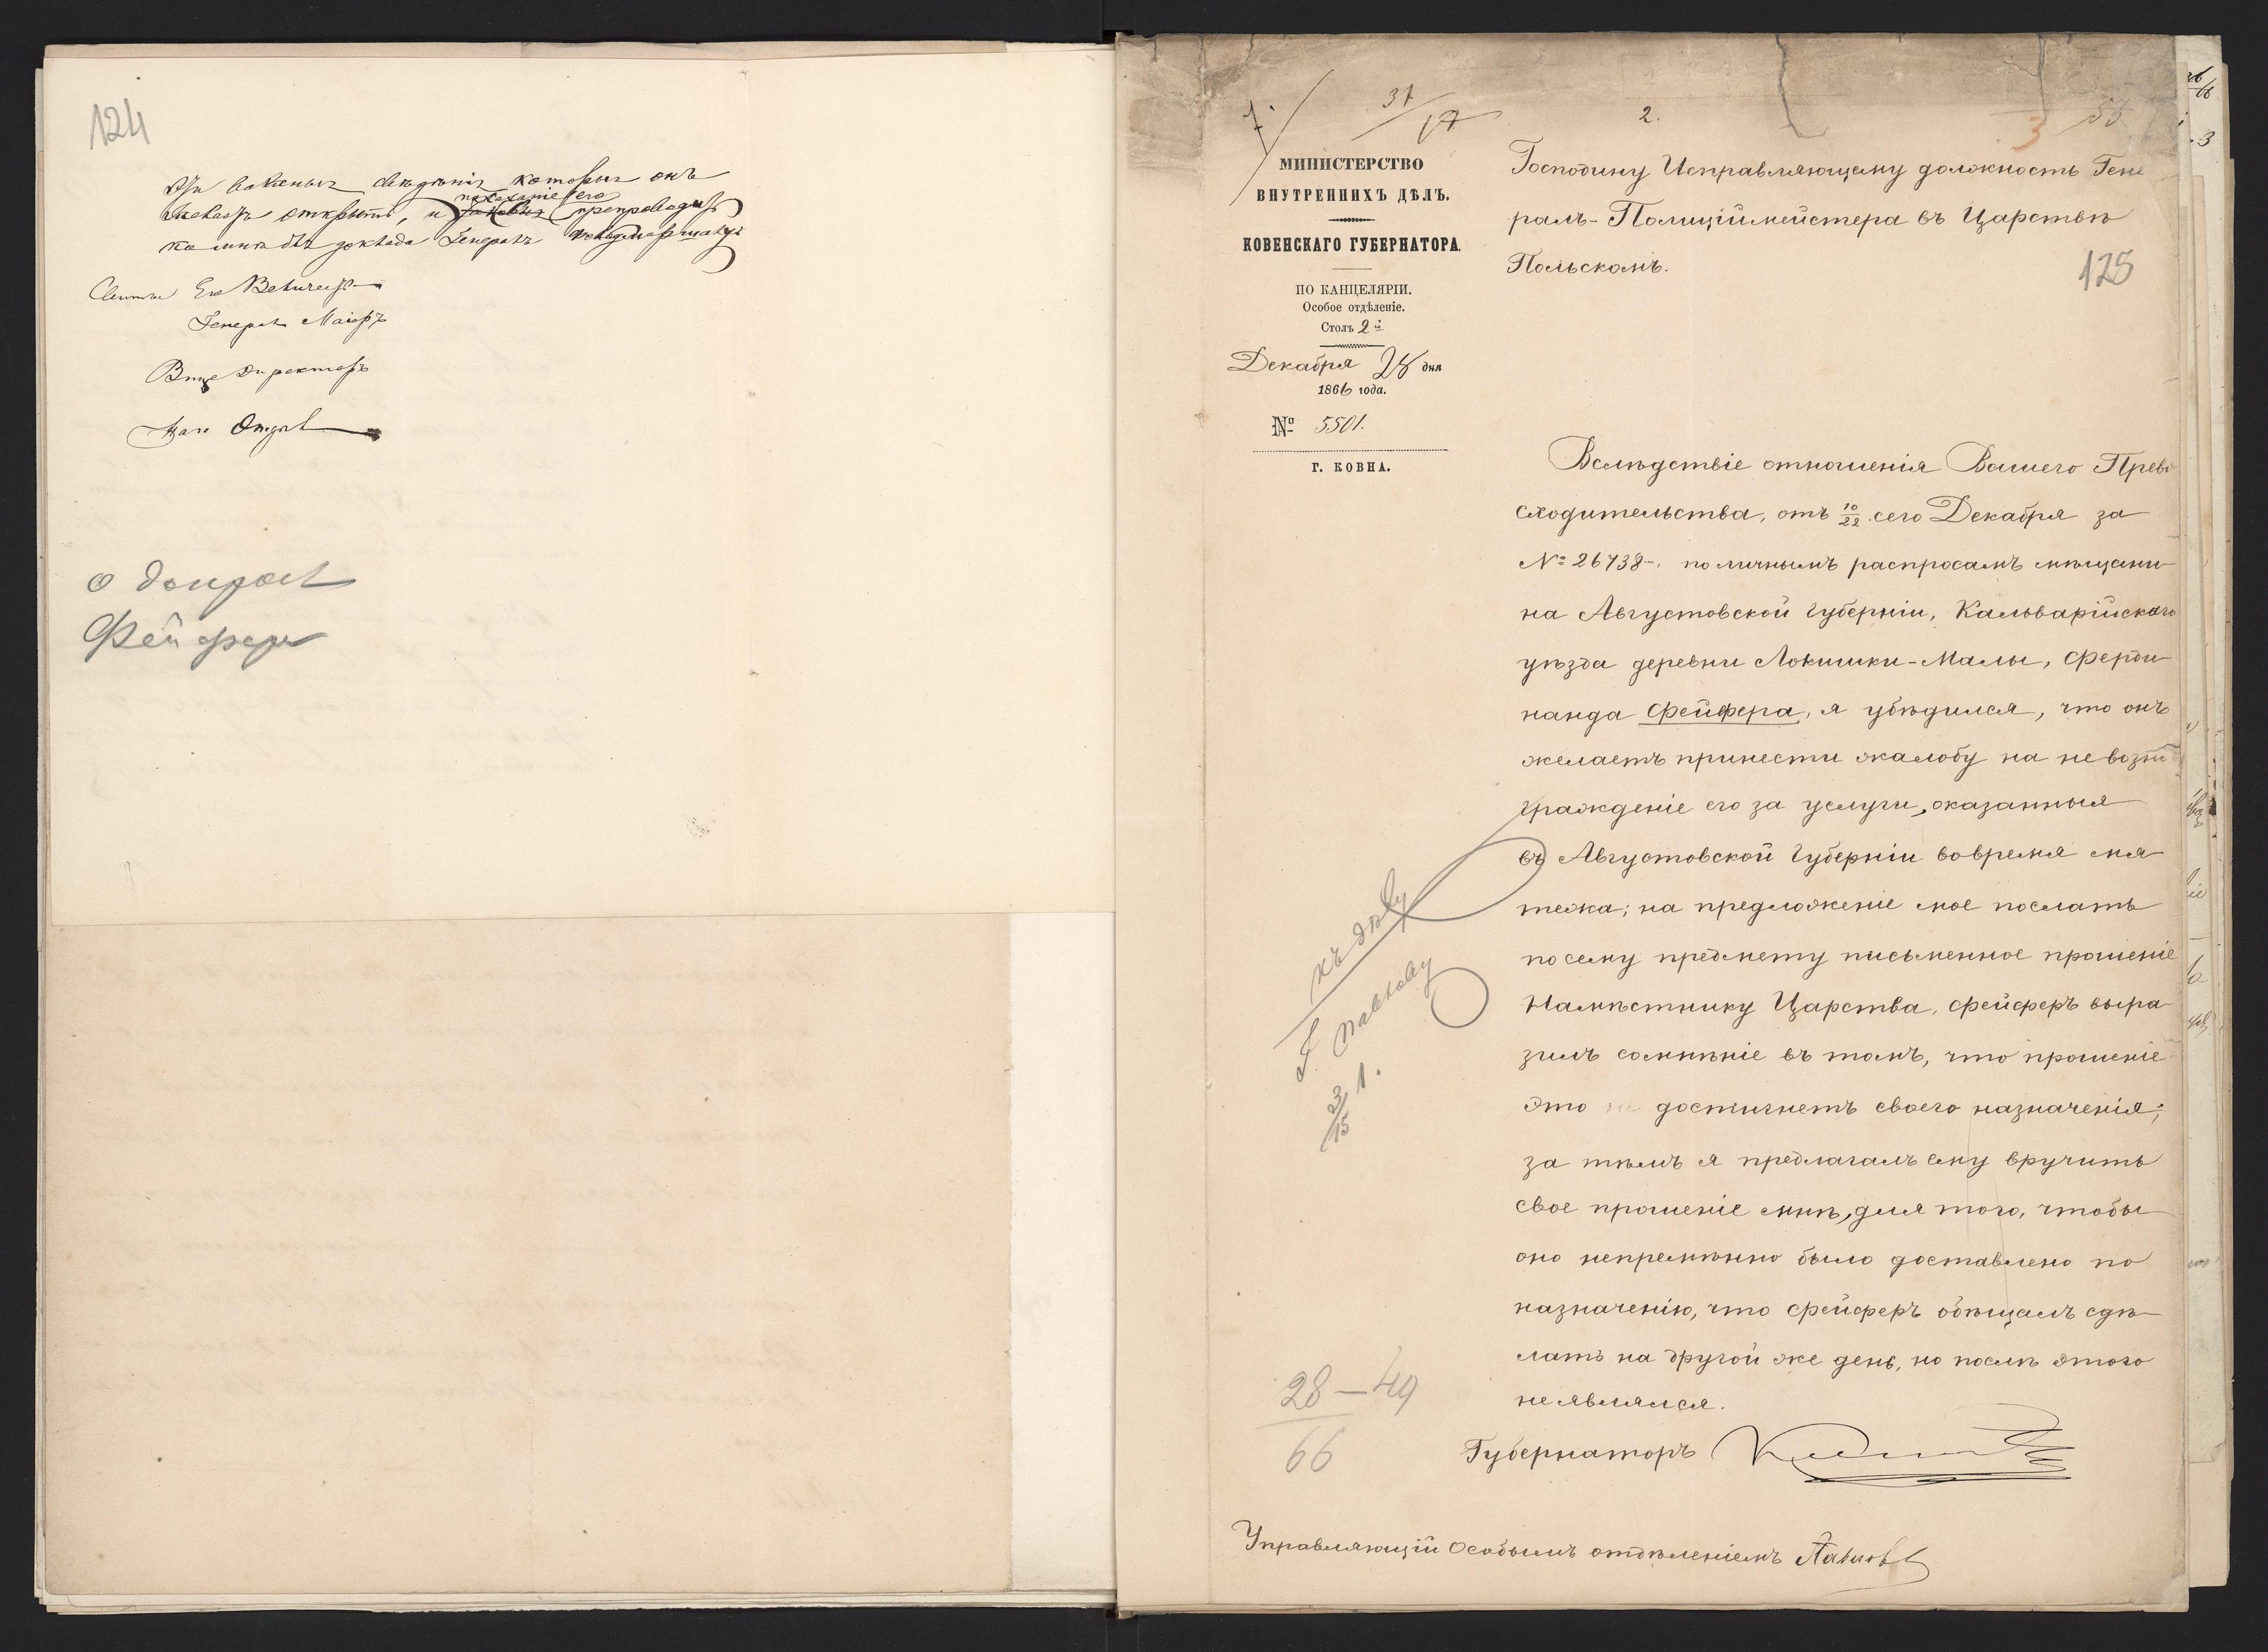 124
которыя онъ
показаніе его
открыть, и препроводить
ко мнѣ для доклада Генералъ Фельдмаршалу
Свиты Его Величества
Генералъ Маіоръ
Вице Директоръ
Нач Отдѣл
о допросѣ
Фейфера
31
17
2.
3
55
125
МИНИСТЕРСТВО
ВНУТРЕННИХЪ ДѢЛЪ.
КОВЕНСКАГО ГУБЕРНАТОРА.
ПО КАНЦЕЛЯРІИ.
Особое отдѣленіе.
Столъ 2й
Декабря 28 дня
1866 года.
№ 5501.
Г. КОВНА.
Господину Исправляющему должность Гене
ралъ-Полиціймейстера въ Царствѣ
Польскомъ.
Вслѣдствіе отношенія Вашего Прево
сходительства, отъ 10/22 сего Декабря за
№ 26738. по личнымъ распросамъ мѣщани-
на Августовской губерніи, Кальварійскаго
уѣзда деревни Локишки-Малы, Ферди-
нанда Фейфера, я убѣдился, что онъ
желаетъ принести жалобу на невозна
гражденіе его за услуги, оказанныя
въ Августовской губерніи вовремя мя-
тежа; на предложеніе мое послать
по сему предмету письменное прошеніе
Намѣстнику Царства, Фейферъ выра-
зилъ сомнѣніе въ томъ, что прошеніе
это достигнетъ своего назначенія;
за тѣмъ я предлагалъ ему вручить
свое прошеніе мнѣ, для того, чтобы
оно непремѣнно было доставлено по
назначенію, что Фейферъ обѣщалъ сдѣ-
лать на другой же день, но послѣ этого
не являлся.
къ дѣлу
Г. Павлову
3/15 1.
28-49
66
Губернаторъ
Управляющій Особымъ отдѣленіемъ Павловъ